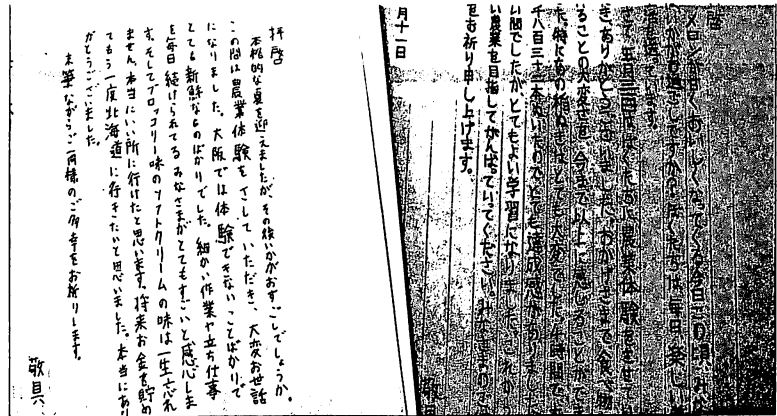 啓
メロンが甘くおいしくなってくる今日この頃、みな
いかがお過ごしですか。ぼくたちは毎日楽しい
活を送っています。
さて、五月 日はぼくたちに農業体験をさせて
き、ありがとうございました。おかげさまで食べ物
ることの大変さを、今まで以上に感じることができ
た。特にあの ぬきはとても大変でした。4時間で、
千八百三十二本ぬいたのでとても達成感がありました
い間でしたがとてもよい学習になりました。これか
い農業を目指してがんばっていてください。みなさまのご
をお祈り申し上げます。
敬具
月十一日
拝啓
本格的な夏を迎えましたが、その後いかがおすごしでしょうか。
この間は農業体験をさしていただき、大変お世話
になりました。大阪では体験できないことばかりで
とても新鮮なものばかりでした。細かい作業や立ち仕事
を毎日続けられてるみなさまがとてもすごいと感心しま
す。そしてブロッコリー味のソフトクリームの味は一生忘れ
ません。本当にいい所に行けたと思います。将来お金を貯め
てもう一度北海道に行きたいと思いました。本当にあり
がとうございました。
末筆ながらご一同様のご多幸をお祈りします。
敬具